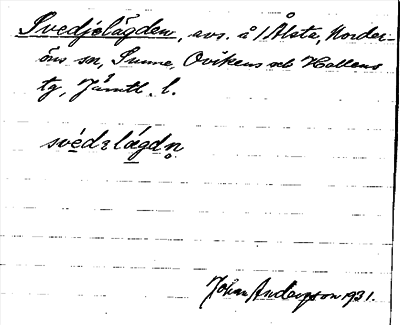 Svedjelägden, avs. å 1 Ålsta, Norder-
öns sn, Sunne, Ovikens och Hallens
tg, Jämtl. l.
svédɛlǽgdn̥
Johan Anderson 1931.